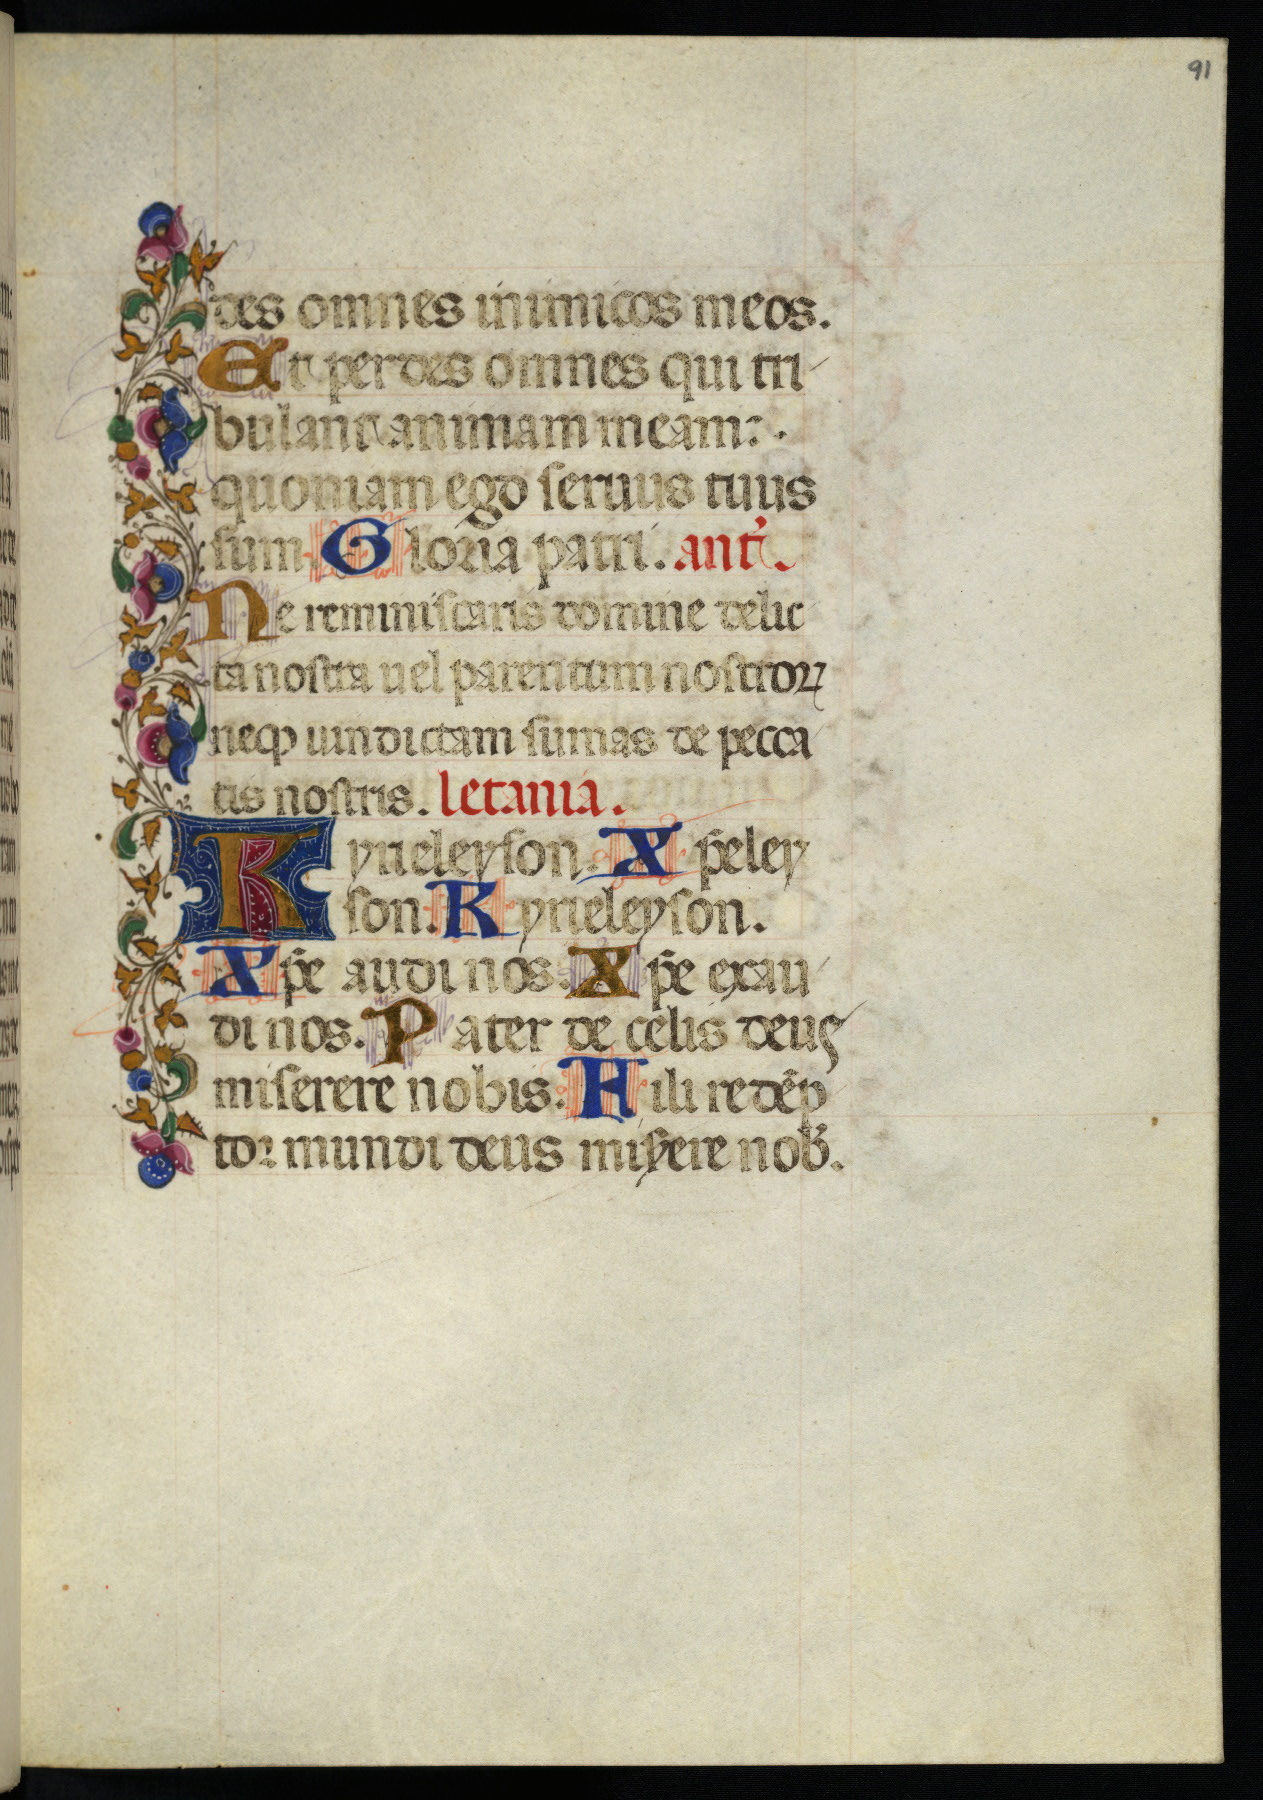 91
des omnes inimicos meos.
Et perdes omnes qui tri
bulant animam meam: .
quoniam ego seruus tuus
sum. Gloria patri. ant̾.
Ne reminiscaris domine delic
ta nostra uel parentum nostroꝝ
neqꝫ uindictam sumas de pecca
tis nostris. letania.
Kyrieleyson. Xp̄eley
son. Kyrieleyson.
Xp̄e audi nos. Xp̄e exau
di nos. Pater de celis deus
miserere nobis. Fili redēp
tor mundi deus mis̾ere nob̾.